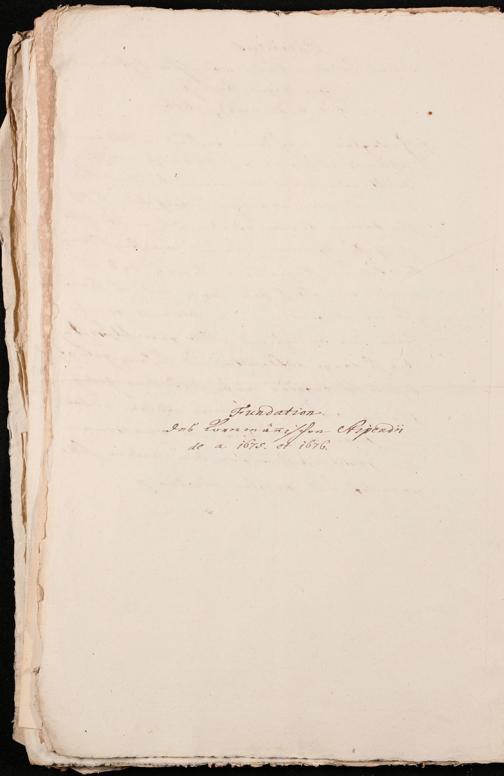 Fundation
des Kornmännischen Stipendii
de a. 1675. et 1676.